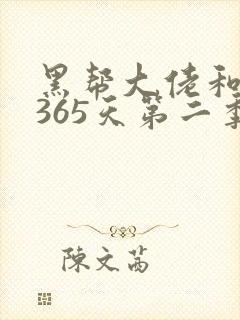 黑帮大佬和
365天第二季
陳文茜